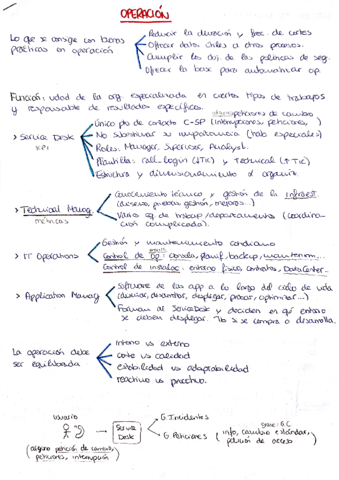 OPERACIÓN
Reducir la duración y frec. de cortes
Lo que se consigue con buenas prácticas en operación
Ofrecer datos útiles a otros procesos.
Cumplir los obj. de las políticas de seg.
Ofrecer la base para automatizar op.
Función: udad de la org. especializada en ciertos tipos de trabajos
y responsable de resultados específicos.
peticiones de cambio
Único pto de contacto C-SP (interrupciones, peticiones, )
> Service Desk
KPI
No subestimar su importancia (trab especiales)
Roles: Manager, Supervisor, Analyst.
Plantilla: call-login (↓TIC) y Technical (↑TIC)
Estructura y dimensionamiento al organiz.
> Technical Manag.
métricas
Conocimiento técnico y gestión de la infraest.
(diseño, pruebas, gestión, mejoras...)
Varios eq. de trabajo/departamentos (coordina-
ción complicada).
> IT Operations
Gestión y mantenimiento cotidiano
Control de Op: consola, planif, backup, mantenim...
Control de instalac: entorno físico, controles, Data Center...
> Application Manag
Software de las app a lo largo del ciclo de vida
(diseñar, desarrollar, desplegar, probar, optimizar...)
Forman al Service Desk y deciden en qué entorno
se deben desplegar. No si se compra o desarrolla.
La operación debe
ser equilibrada
interno vs externo
coste vs calidad
estabilidad vs adaptabilidad
reactivo vs proactivo.
usuario
Service
Desk
G. Incidentes
G. Peticiones
(info, cambio estándar,
petición de acceso)
peticiones, interrupción)